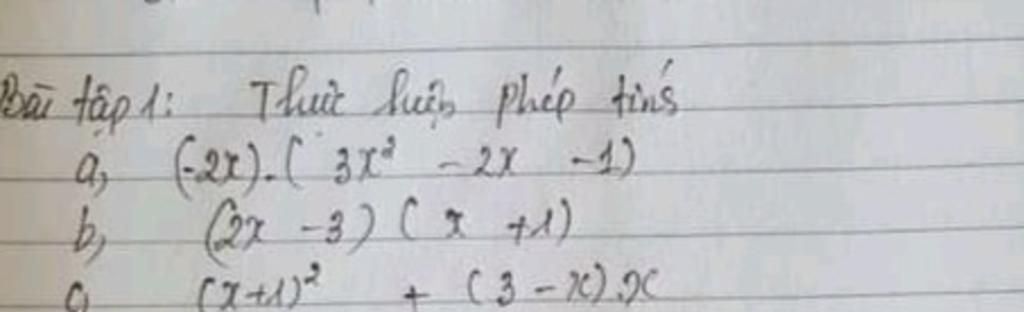 Bài tập 1: Thực hiện phép tính
a, (-2x).(3x² - 2x - 1)
b, (2x - 3)(x + 1)
c, (x+1)² + (3 - x).x